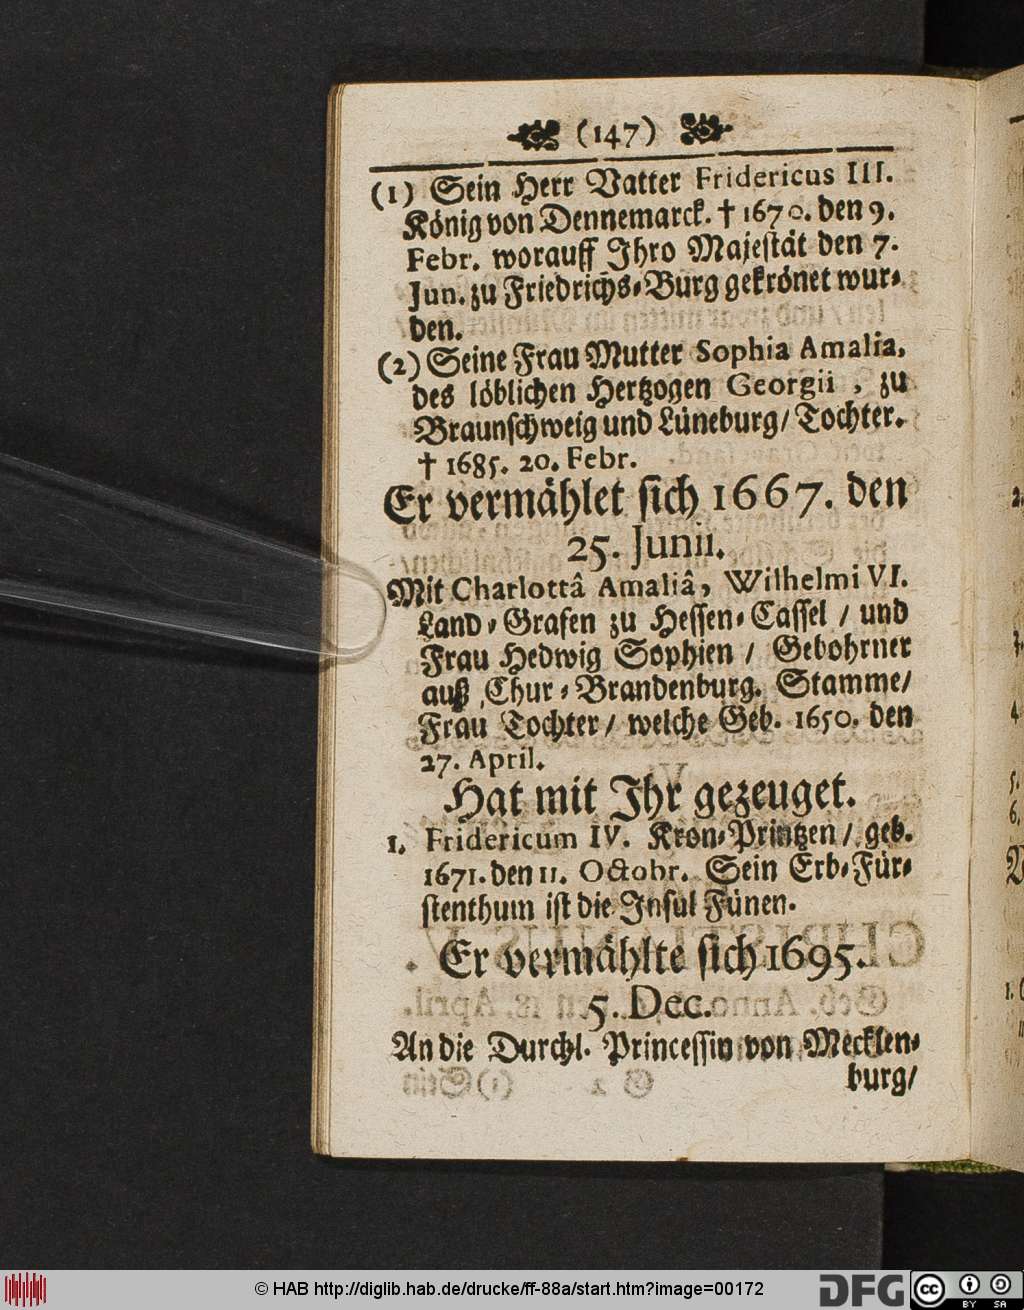 (147)
(1) Sein Herr Vatter Fridericus III.
König von Dennemarck. † 1670. den 9.
Febr. worauff Ihro Majestät den 7.
Jun. zu Friedrichs-Burg gekrönet wur-
den.
(2) Seine Frau Mutter Sophia Amalia,
des löblichen Hertzogen Georgii, zu
Braunschweig und Lüneburg/ Tochter.
† 1685. 20. Febr.
Er vermählet sich 1667. den
25. Junii.
Mit Charlottâ Amaliâ, Wilhelmi VI.
Land-Grafen zu Hessen-Cassel / und
Frau Hedwig Sophien / Gebohrner
auß Chur-Brandenburg. Stamme/
Frau Tochter/ welche Geb. 1650. den
27. April.
Hat mit Ihr gezeuget.
1. Fridericum IV. Kron-Printzen/ geb.
1671. den 11. Octobr. Sein Erb-Für-
stenthum ist die Insul Fünen.
Er vermählte sich 1695.
5. Dec.
An die Durchl. Princessin von Mecklen-
burg/
© HAB http://diglib.hab.de/drucke/ff-88a/start.htm?image=00172
DFG
cc BY SA